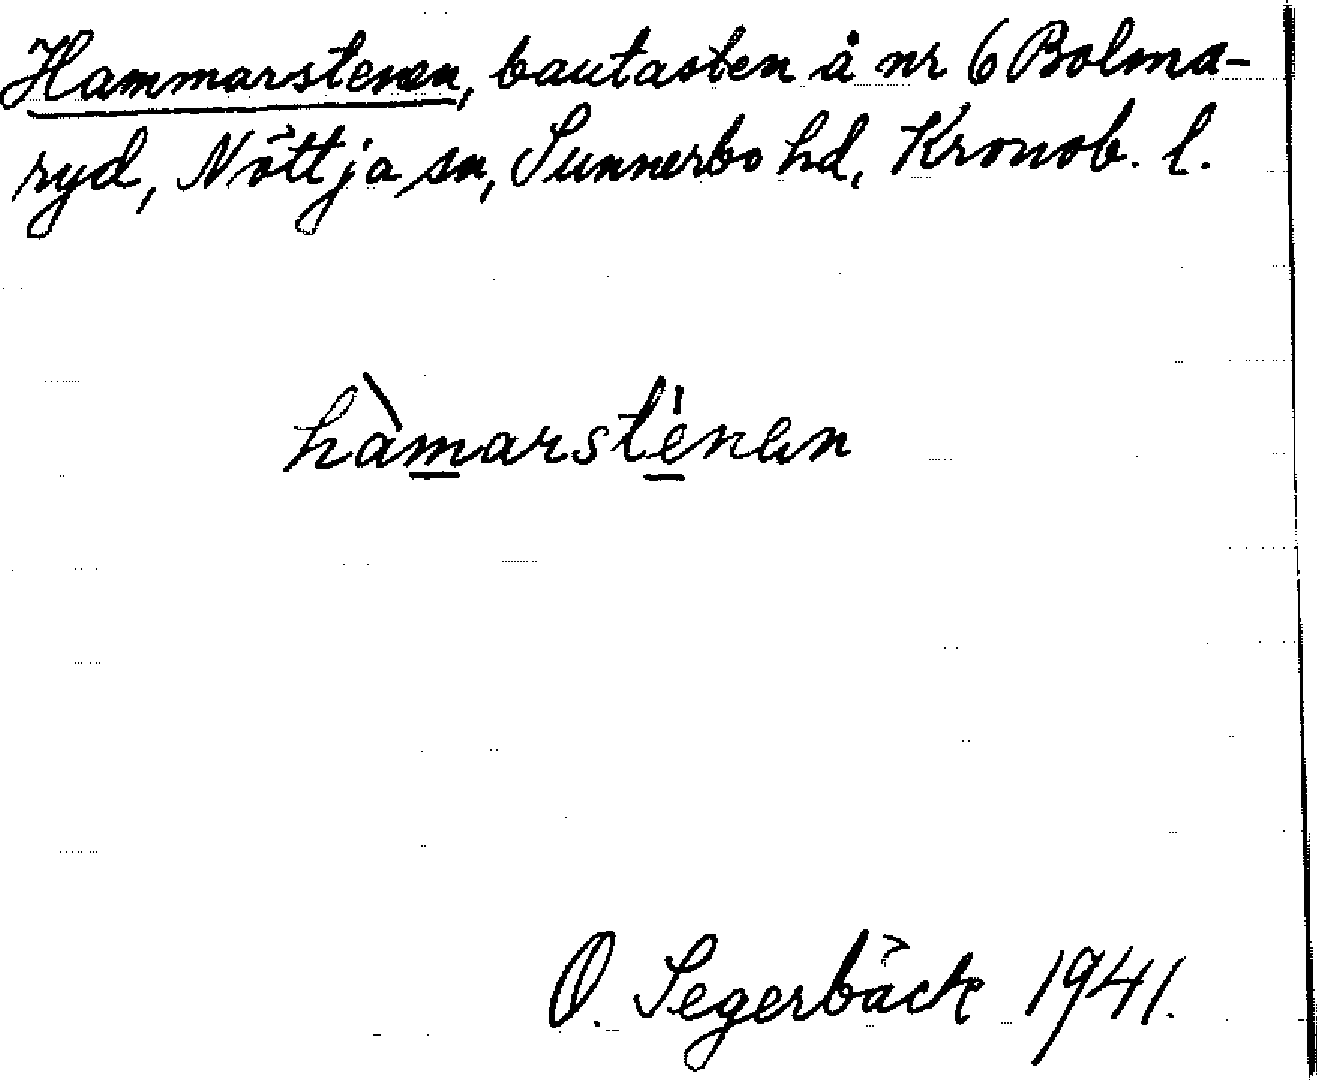 Hammarstenen, bautasten å nr 6 Bolma-
ryd, Nöttja sn, Sunnerbo hd, Kronob. l.
hàmarsténen
O. Segerbäck 1941.